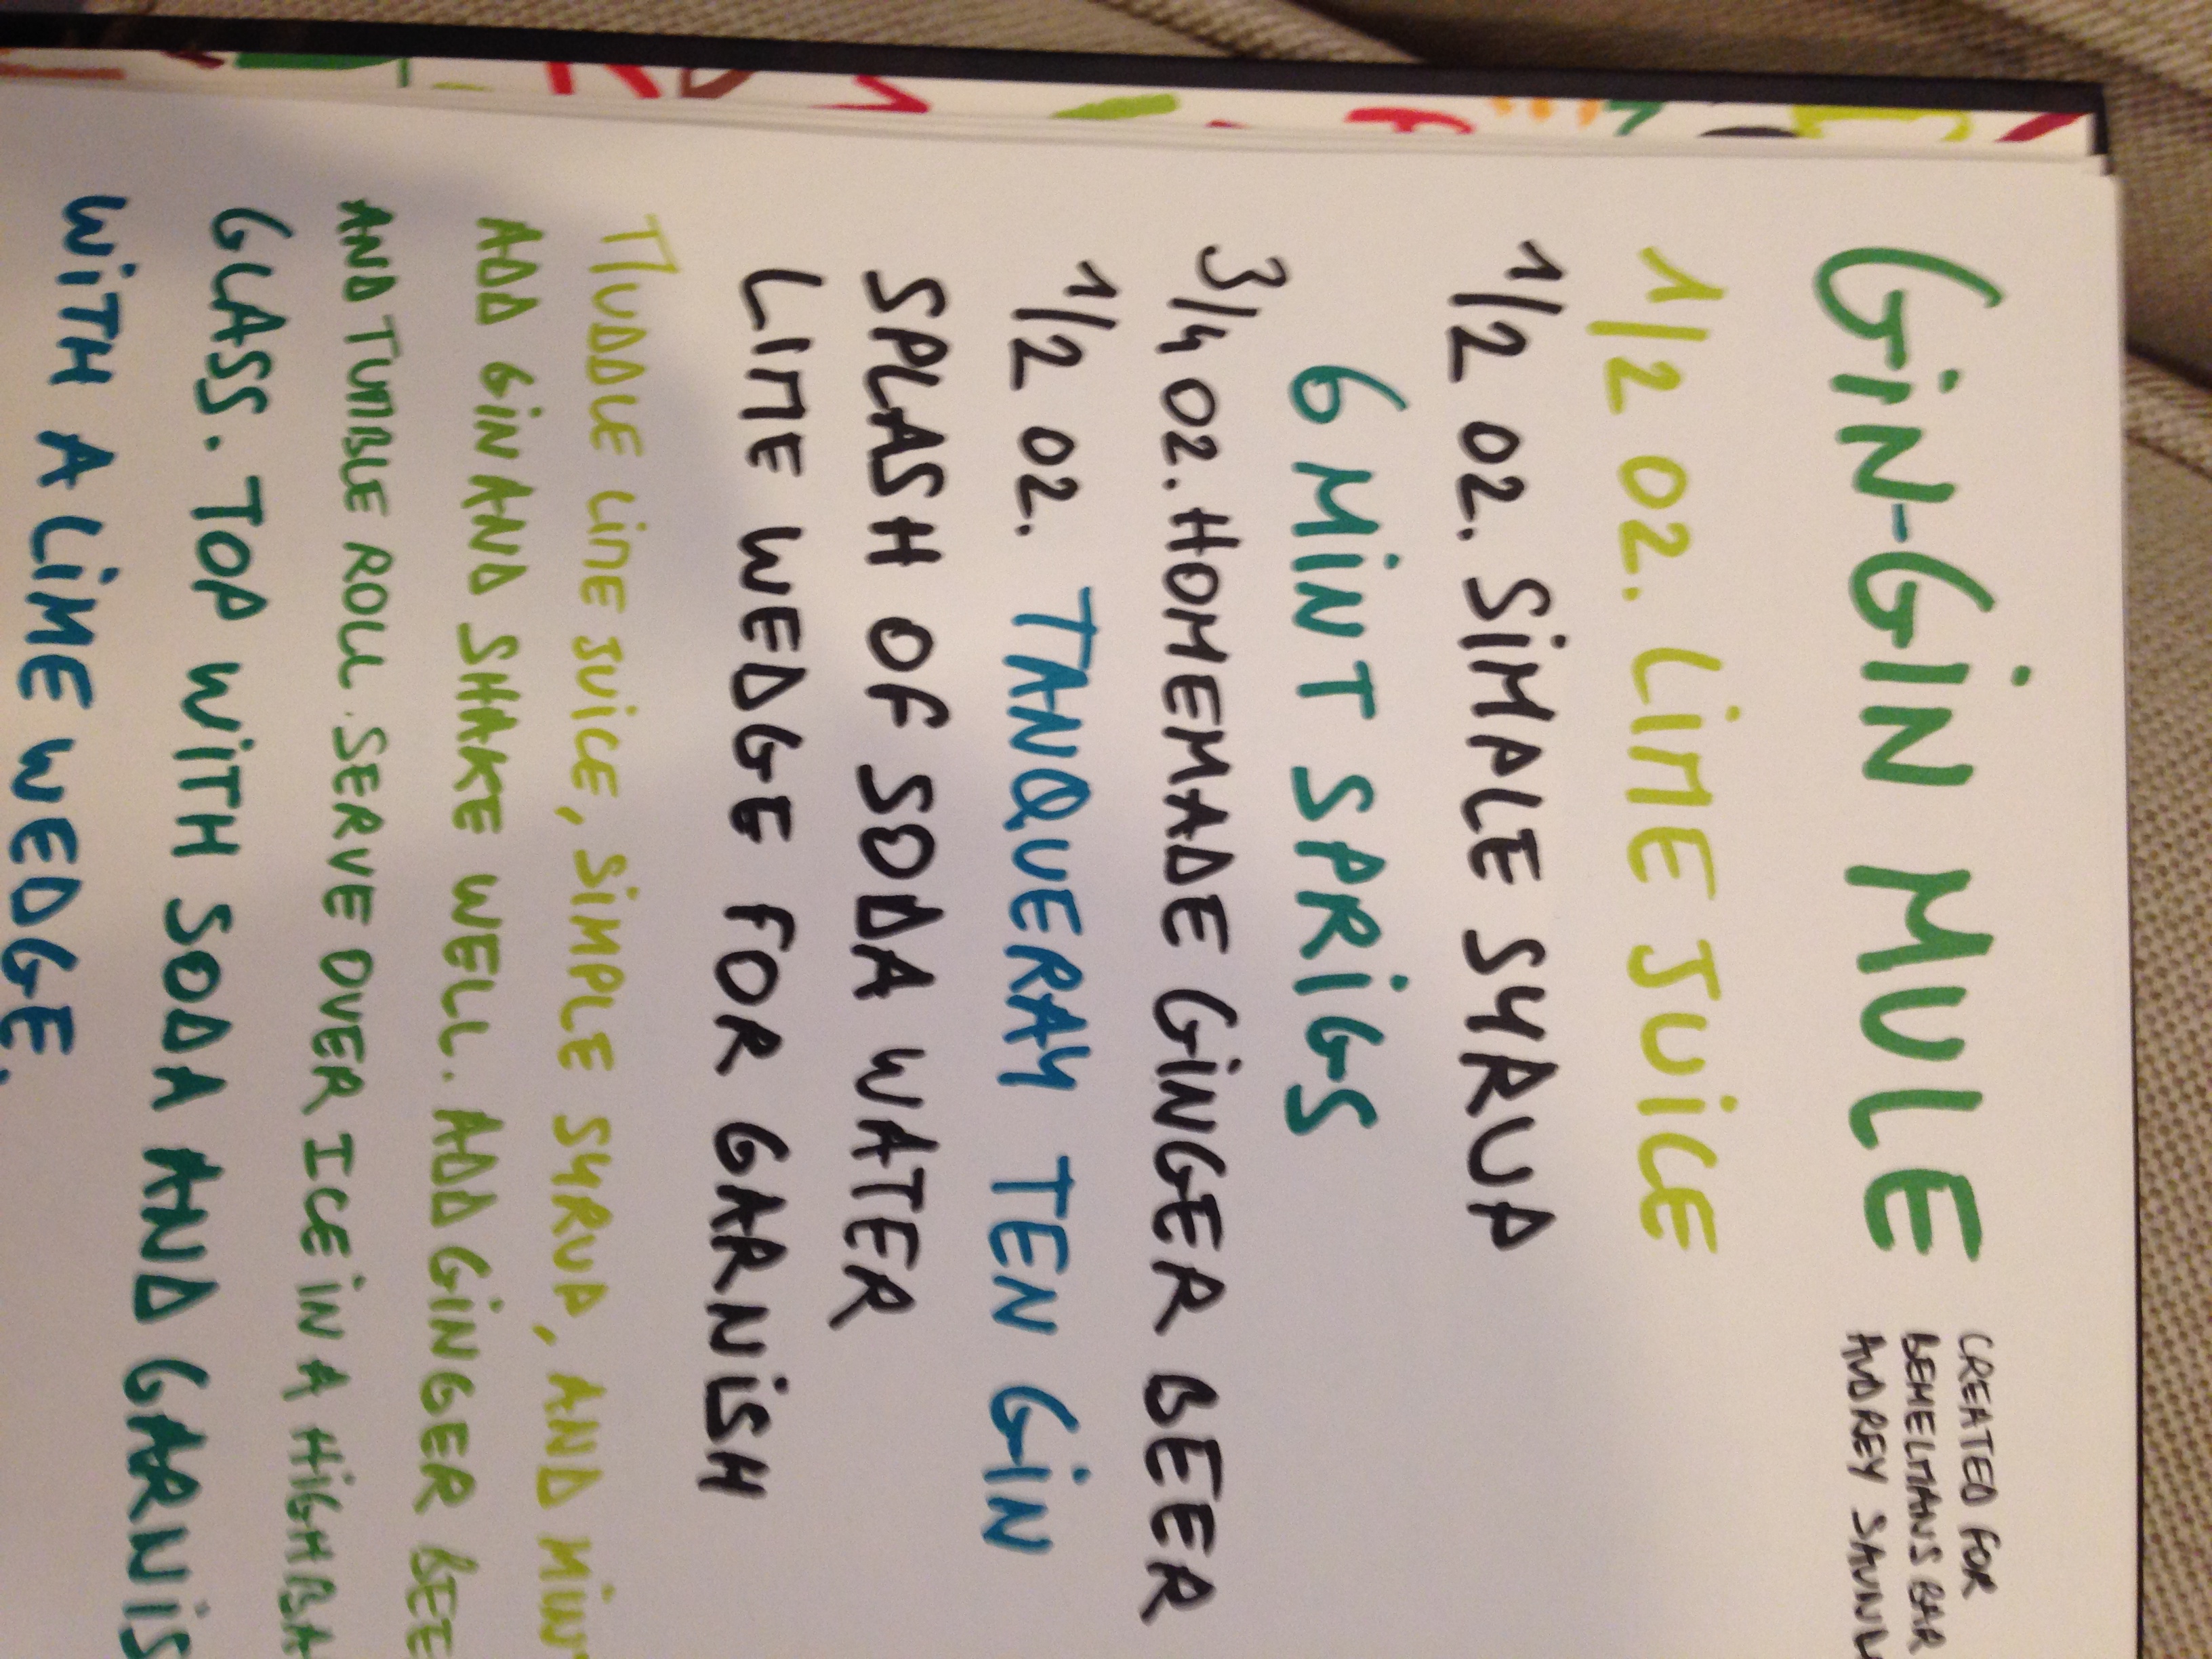 GiN-GiN MULE
CREATED FOR
BEMELMANS BAR
AUDREY
1/2 OZ. LiME JUiCE
1/2 OZ. SiMPLE SYRUP
6 MiNT SPRiGS
3/4 OZ. HOMEMADE GiNGER BEER
1/2 OZ. TANQUERAY TEN GiN
SPLASH OF SODA WATER
LIME WEDGE FOR GARNiSH
MUDDLE LiME JUiCE, SiMPLE SYRUP, AND MiNT
ADD GiN AND SHAKE WELL. ADD GiNGER BEE
AND TUMBLE ROLL. SERVE OVER ICE iN A HiGHBA
GLASS. TOP WiTH SODA AND GARNiS
WiTH A LiME WEDGE.